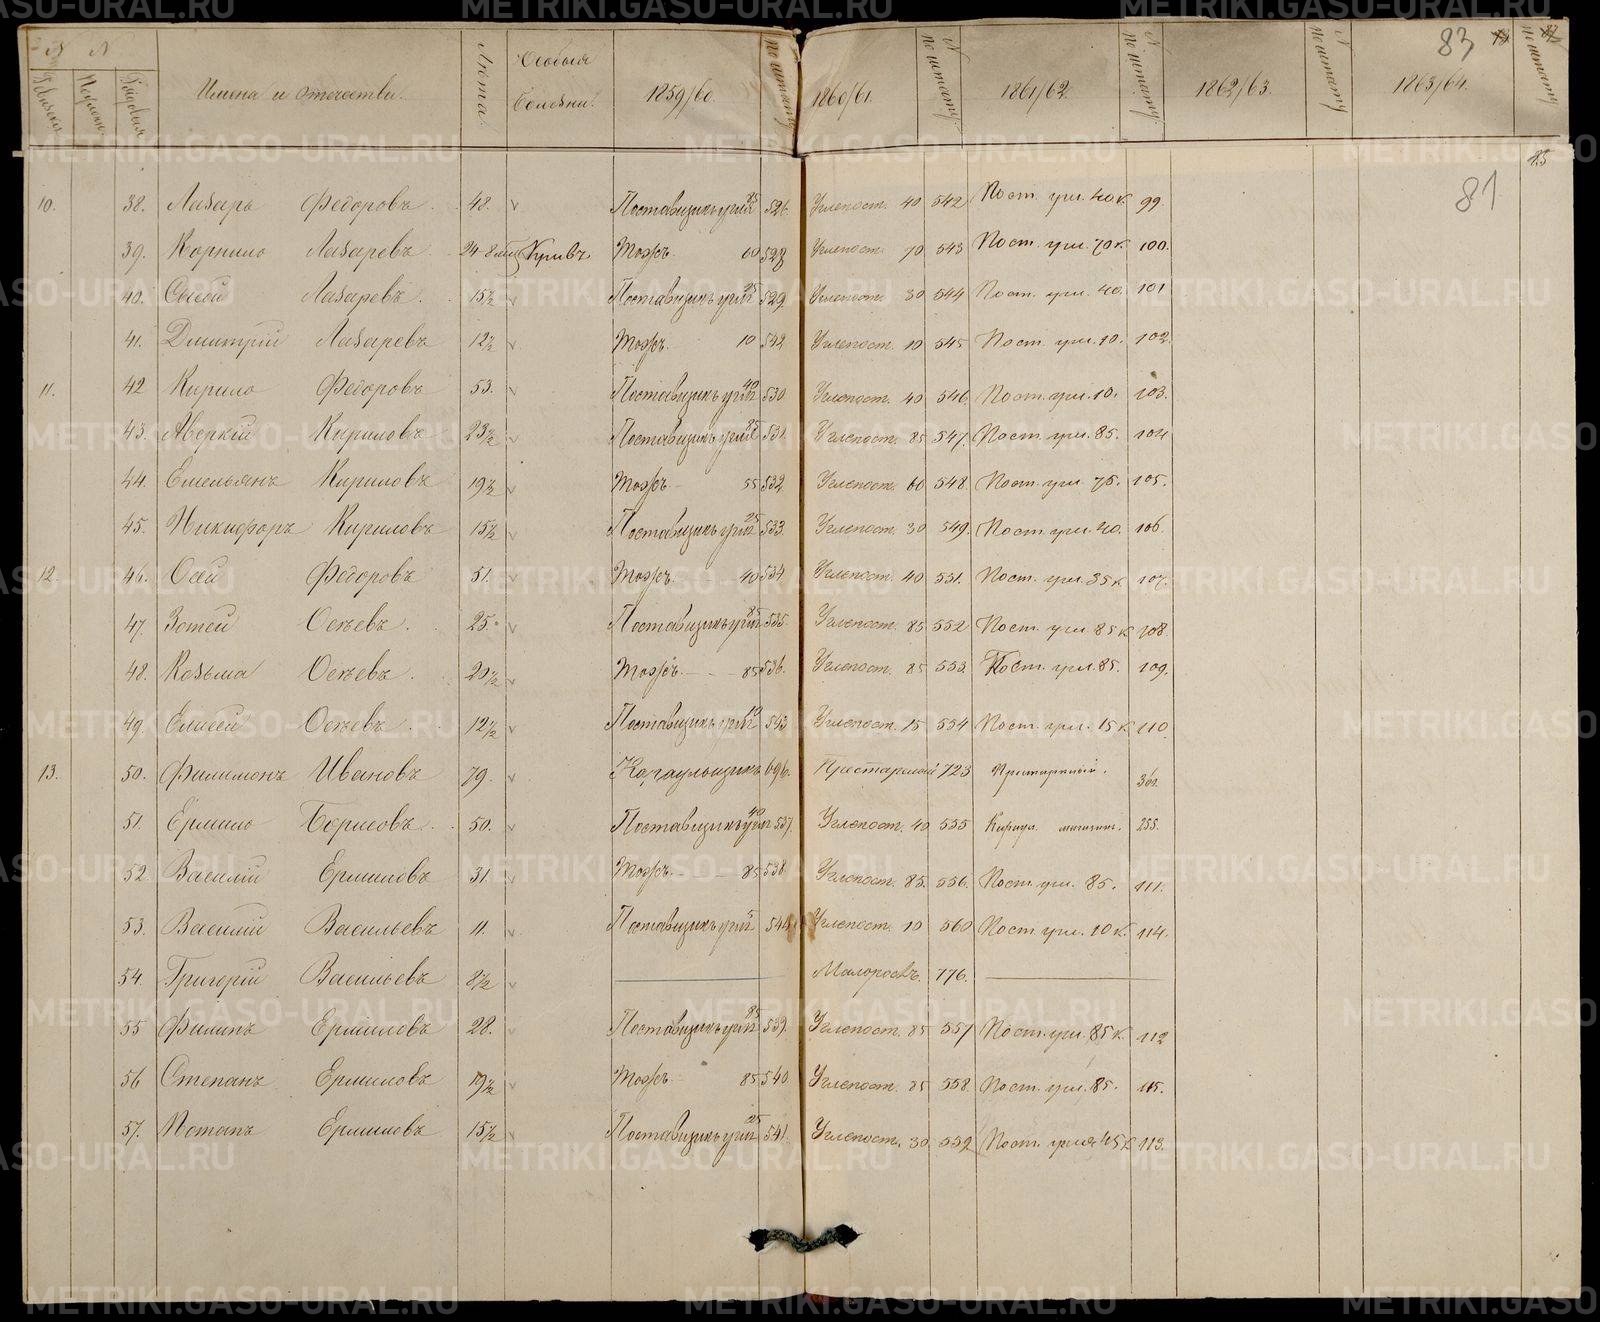 № № Имена и отечества. Лѣта. Особыя болѣзни. 1859/60. № по штату 1860/61. № по штату. 1861/62. № по штату. 1862/63. № по штату 1863/64. № по штату
83
81
10. 38. Лазарь Федоровъ. 48. Поставщикъ угля 85 526. Углепост. 40 542 Пост. угл. 40 к. 99.
39. Корнило Лазаревъ 24 Кривъ Тожъ. 60 528 Углепост. 70 543 Пост. угл. 70 к. 100.
40. Сысой Лазаревъ. 15½ Поставщикъ угля 25 529 Углепост. 30 544 Пост. угл. 40. 101
41. Дмитрій Лазаревъ 12½ Тожъ. 10 542 Углепост. 10 545 Пост. угл. 10. 102.
11. 42 Кирило Федоровъ 53. Поставщикъ угля 40 530 Углепост. 40 546 Пост. угл. 10. 103.
43. Аверкій Кириловъ 23½ Поставщикъ угля 85 531 Углепост. 85 547. Пост. угл. 85. 104
44. Емельянъ Кириловъ 19½ Тожъ 55 532 Углепост. 60 548. Пост. угл. 75. 105.
45. Никифоръ Кириловъ 15½ Поставщикъ угля 25 533 Углепост. 30 549. Пост. угл. 40. 106.
12. 46. Осей Федоровъ 51. Тожъ. 40 534 Углепост. 40 551. Пост. угл. 35 к 107.
47. Зотей Осѣевъ. 25. Поставщикъ угля 85 535 Углепост. 85 552 Пост. угл. 85 к 108.
48. Козьма Осѣевъ. 20½ Тожъ. 85 536. Углепост. 85 553. Пост. угл. 85. 109.
49. Елисей Осѣевъ. 12½ Поставщикъ угля 10 543 Углепост. 15 554 Пост. угл. 15 к 110.
13. 50. Филимонъ Ивановъ 79. Караульщикъ 696. Престарелый 723 Престарелый. 361.
51. Ермило Борисовъ. 50. Поставщикъ угля 40 537. Углепост. 40 555 Караул. магазин. 255.
52. Василій Ермиловъ 31. Тожъ. 85 538. Углепост. 85. 556. Пост. угл. 85. 111.
53. Василій Васильевъ 11. Поставщикъ угля 5 544 Углепост. 10 560 Пост. угл. 10 к. 114.
54. Григорій Васильевъ 8½ Малоростъ. 776.
55 Филипъ Ермиловъ 28. Поставщикъ угля 85 539. Углепост. 85 557 Пост. угл. 85 к. 112
56 Степанъ Ермиловъ 19½ Тожъ 85 540 Углепост. 85 558. Пост. угл. 85. 115.
57. Потапъ Ермиловъ 15½ Поставщикъ угля 25 541. Углепост. 30 559 Пост. угля 45 к 113.
METRIKI.GASO-URAL.RU